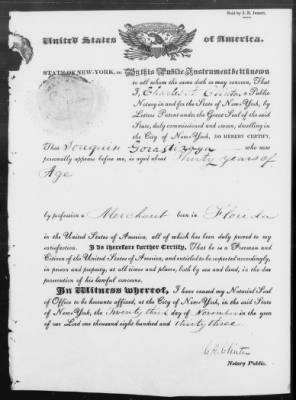 Sold by J. R. Jansen.
United States of America.
STATE OF NEW-YORK, ss. By this Public Instrument be it known
to all whom the same doth or may concern, That
I, Charles A. Clinton a Public
Notary in and for the State of New-York, by
Letters Patent under the Great Seal of the said
State, duly commissioned and sworn, dwelling in
the City of New-York, DO HEREBY CERTIFY,
That Joaquin who now
personally appears before me, is aged about Thirty years of
Age
by profession a Merchant born in Florida
in the United States of America, all of which has been duly proved to my
satisfaction. I do therefore further Certify, That he is a Freeman and
Citizen of the United States of America, and entitled to be respected accordingly,
in person and property, at all times and places, both by sea and land, in the due
prosecution of his lawful concerns.
In Witness whereof, I have caused my Notarial Seal
of Office to be hereunto affixed, at the City of New-York, in the said State
of New-York, the Twenty third day of November in the year
of our Lord one thousand eight hundred and thirty three.
C A Clinton
Notary Public.